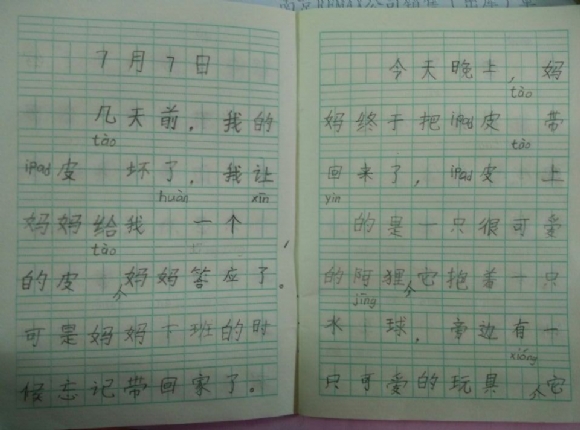 7月7日
几天前，我的
tào
iPad皮 坏了，我让
huàn xīn
妈妈给我 一个
tào
的皮 ，妈妈答应了。
可是妈妈下班的时
候忘记带回家了。
今天晚上，妈
tào
妈终于把iPad皮 带
tào
回来了，iPad皮 上
yìn
的是一只很可爱
的阿狸，它抱着一只
jīng
水 球，旁边有一
xióng
只可爱的玩具 ，它